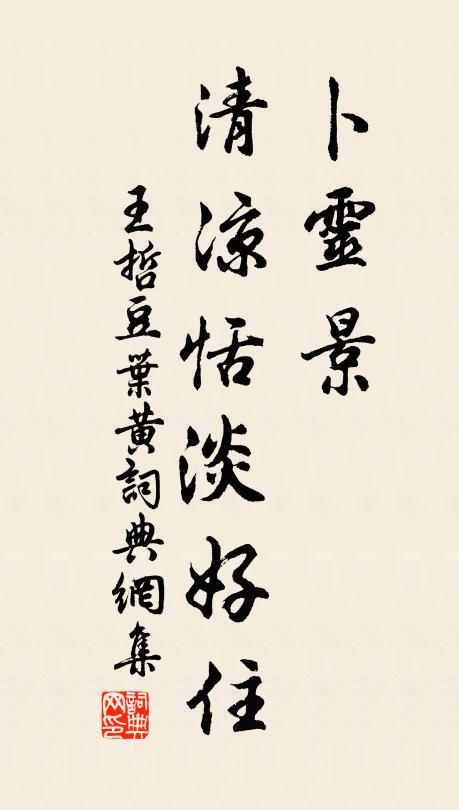 卜靈景
清涼恬淡好住
王哲豆葉黃詞典網集
詞典网印